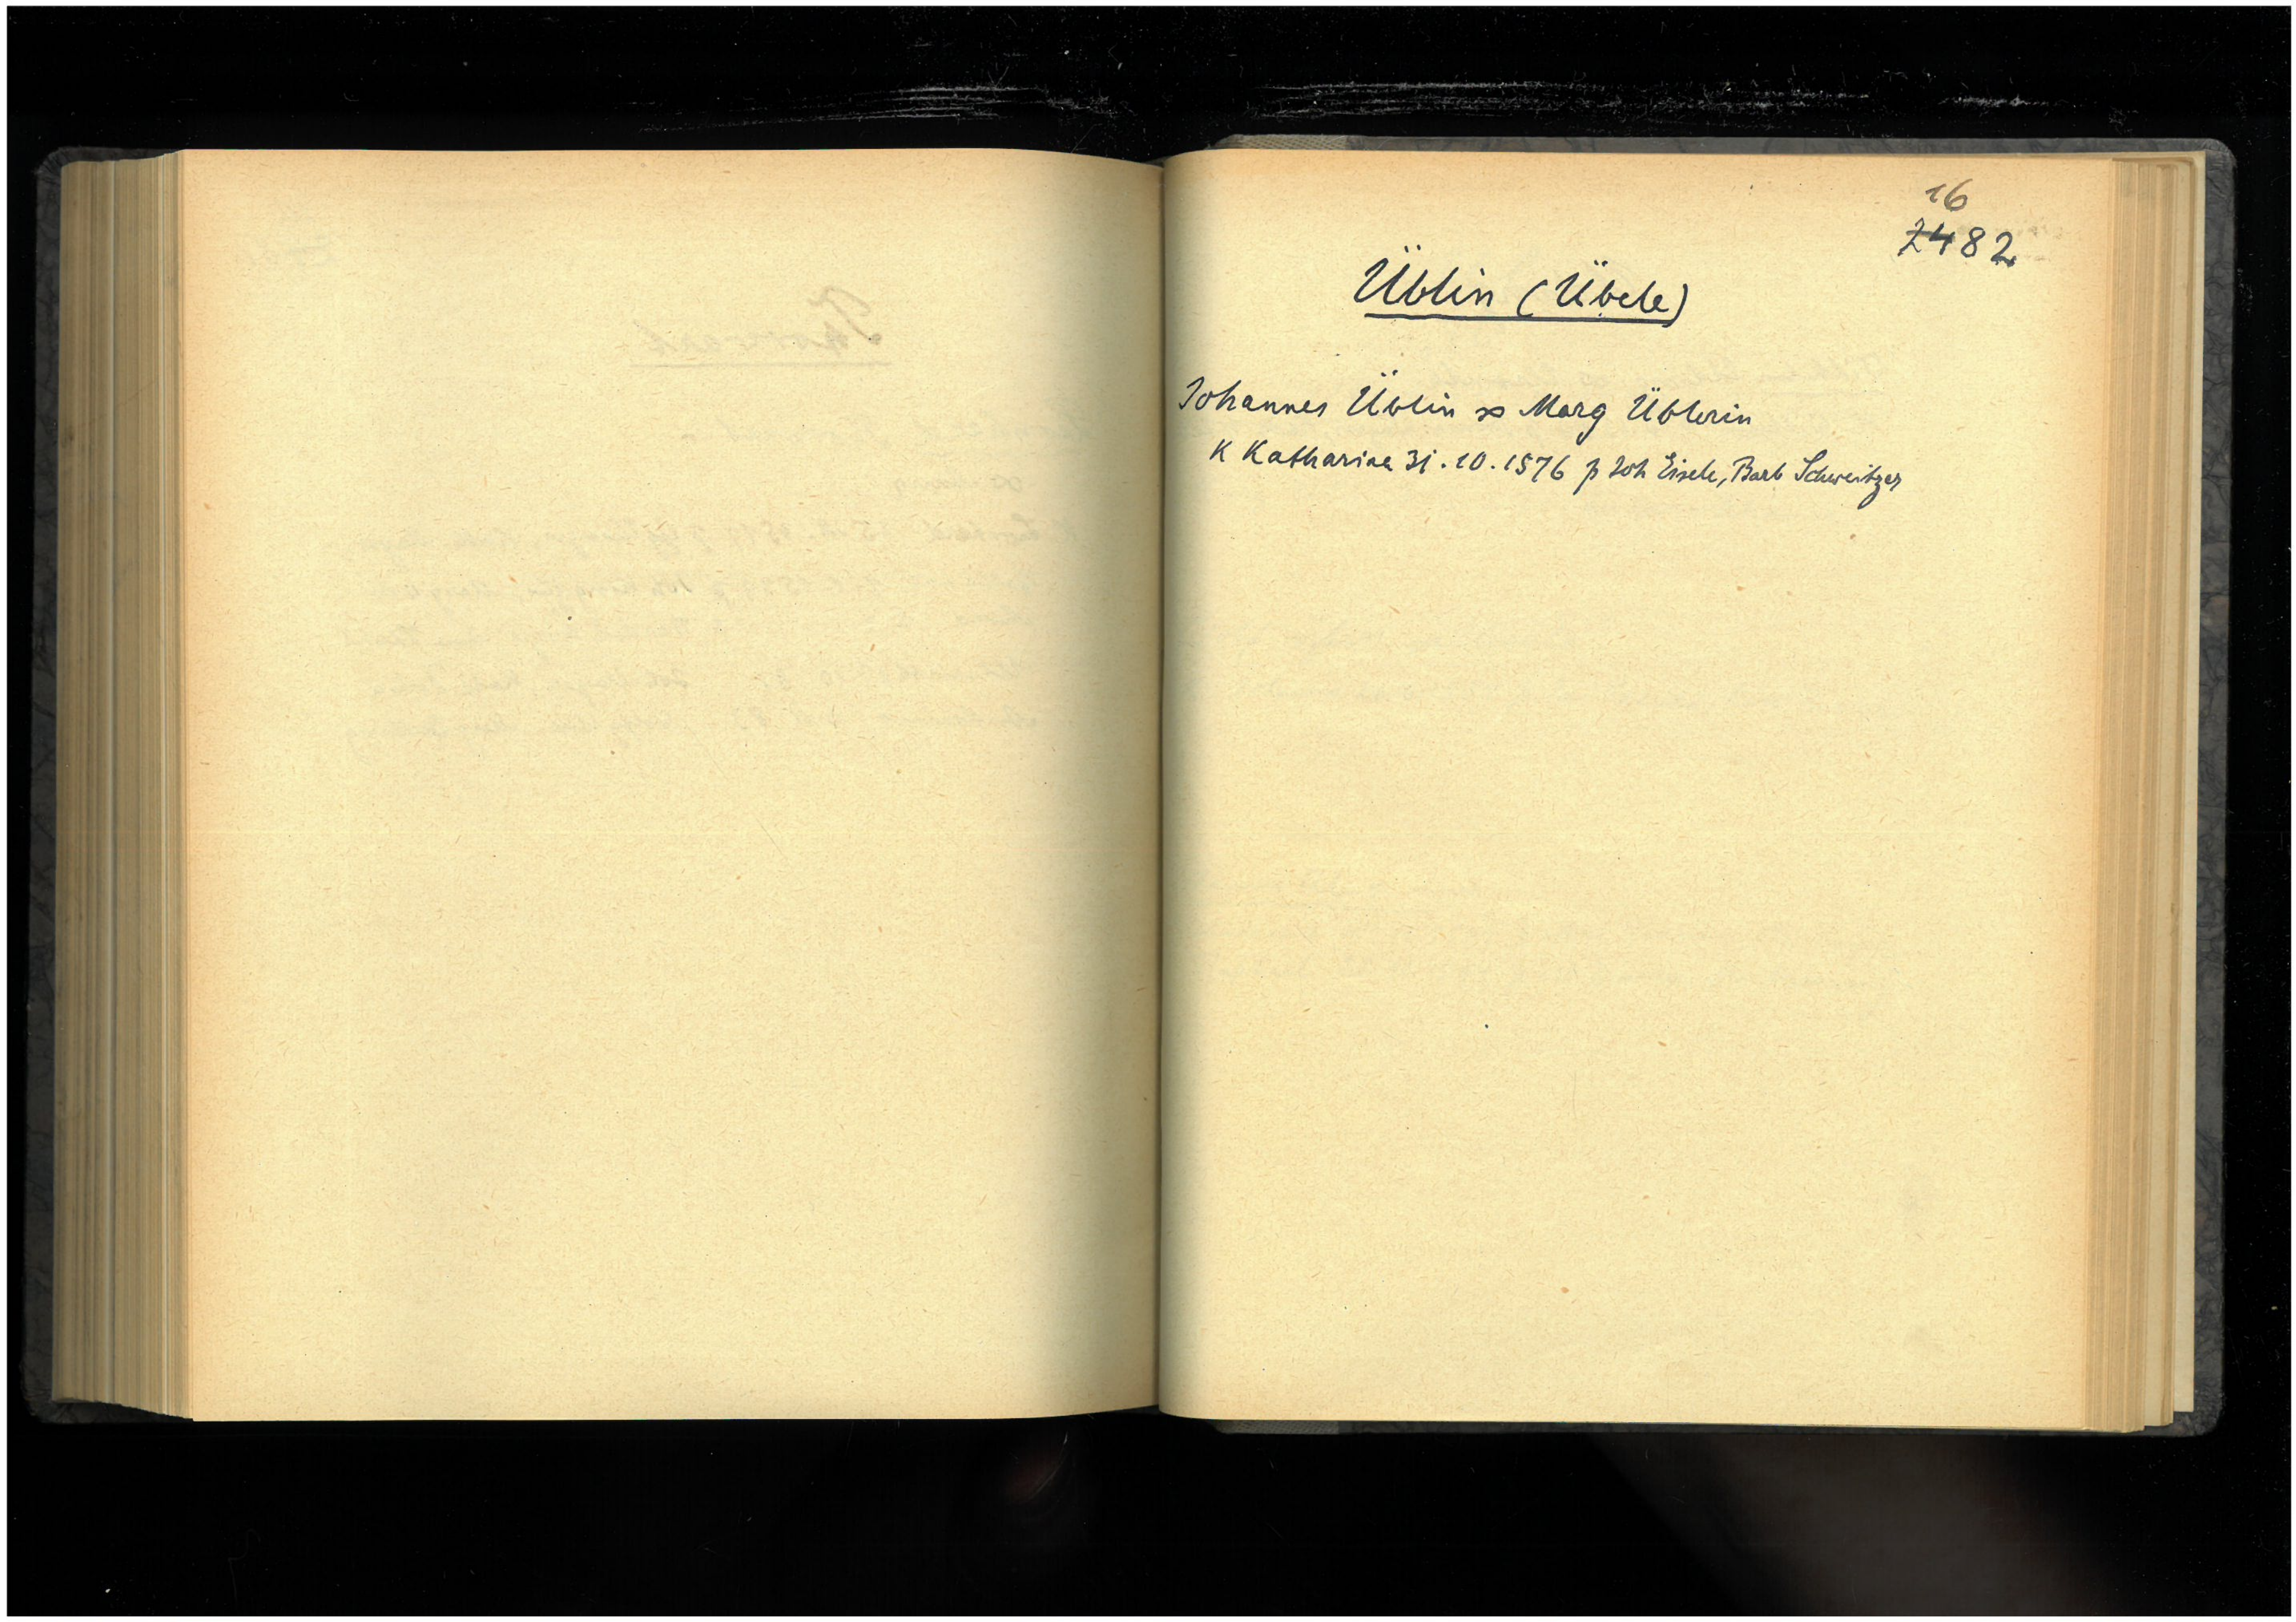 16
2482
Üblin (Übele)
Johannes Üblin ∞ Marg Üblerin
K Katharina 31.10.1576 p Joh Eisele, Barb Schweitzer